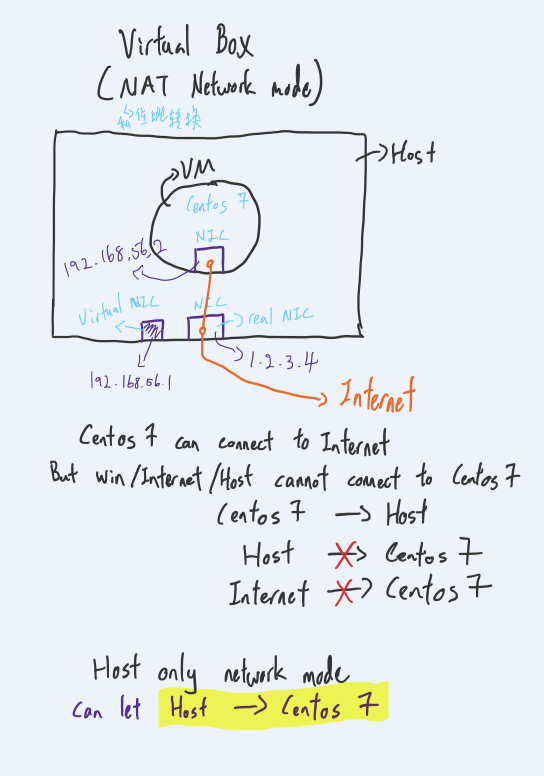 Virtual Box
(NAT Network mode)
位址转换
Host
VM
Centos 7
NIC
192.168.56.2
Virtual NIC
NIC
real NIC
1.2.3.4
192.168.56.1
Internet
Centos 7 can connect to Internet
But win/Internet/Host cannot connect to Centos 7
Centos 7 → Host
Host → Centos 7
Internet → Centos 7
Host only network mode
can let Host → Centos 7